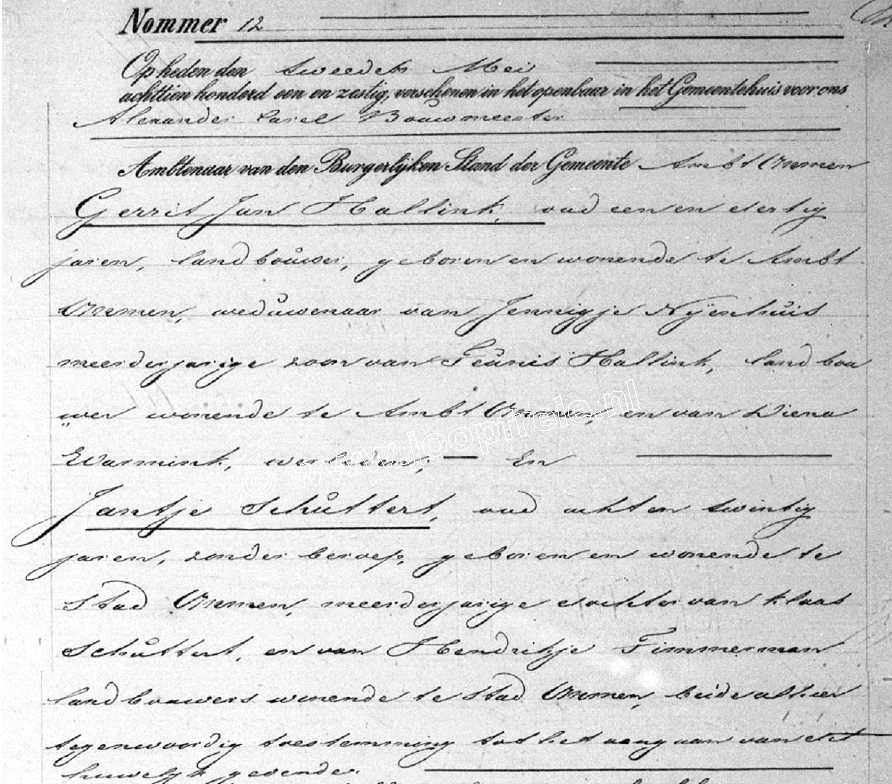 Nommer 12
Op heden den tweeden Mei
achttien honderd een en zestig, verschenen in het openbaar in het Gemeentehuis voor ons
Alexander Carel Bouwmeester
Ambtenaar van den Burgerlijken Stand der Gemeente Ambt Ommen
Gerrit Jan Hallink, oud een en veertig
jaren, landbouwer, geboren en wonende te Ambt
Ommen, weduwenaar van Jennigje Nijenhuis
meerderjarige zoon van Teunis Hallink, landbou
"wer wonende te Ambt Ommen, en van Diena
Warmink, verleden; — En
Jantje Schuttert, oud acht en twintig
jaren, zonder beroep, geboren en wonende te
Stad Ommen, meerderjarige dochter van Klaas
Schuttert, en van Hendrikje Timmerman
landbouwers wonende te Stad Ommen, beide alhier
tegenwoordig toestemming tot het aangaan van dit
huwelijk gevende.